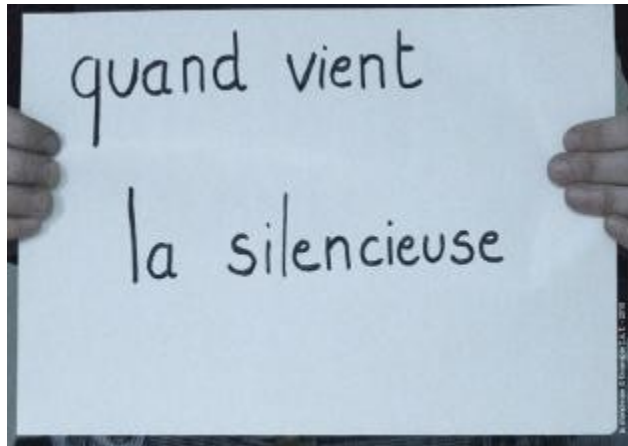 quand vient
la silencieuse